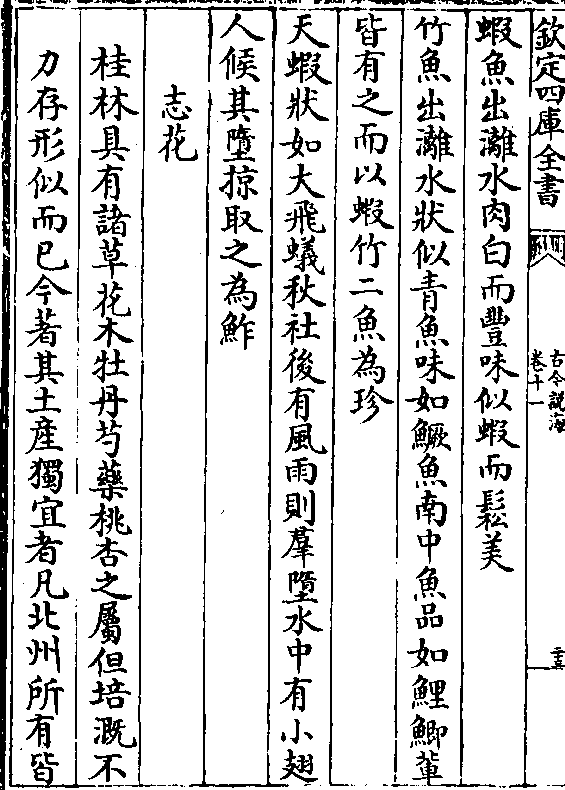 欽定四庫全書
古今說海
卷十一
蝦魚出灕水肉白而豐味似蝦而鬆美
竹魚出灕水狀似青魚味如鱖魚南中魚品如鯉鯽輩
皆有之而以蝦竹二魚為珍
天蝦狀如大飛蟻秋社後有風雨則羣墮水中有小翅
人候其墮掠取之為鮓
志花
桂林具有諸草花木牡丹芍藥桃杏之屬但培溉不
力存形似而已今著其土産獨宜者凡北州所有皆